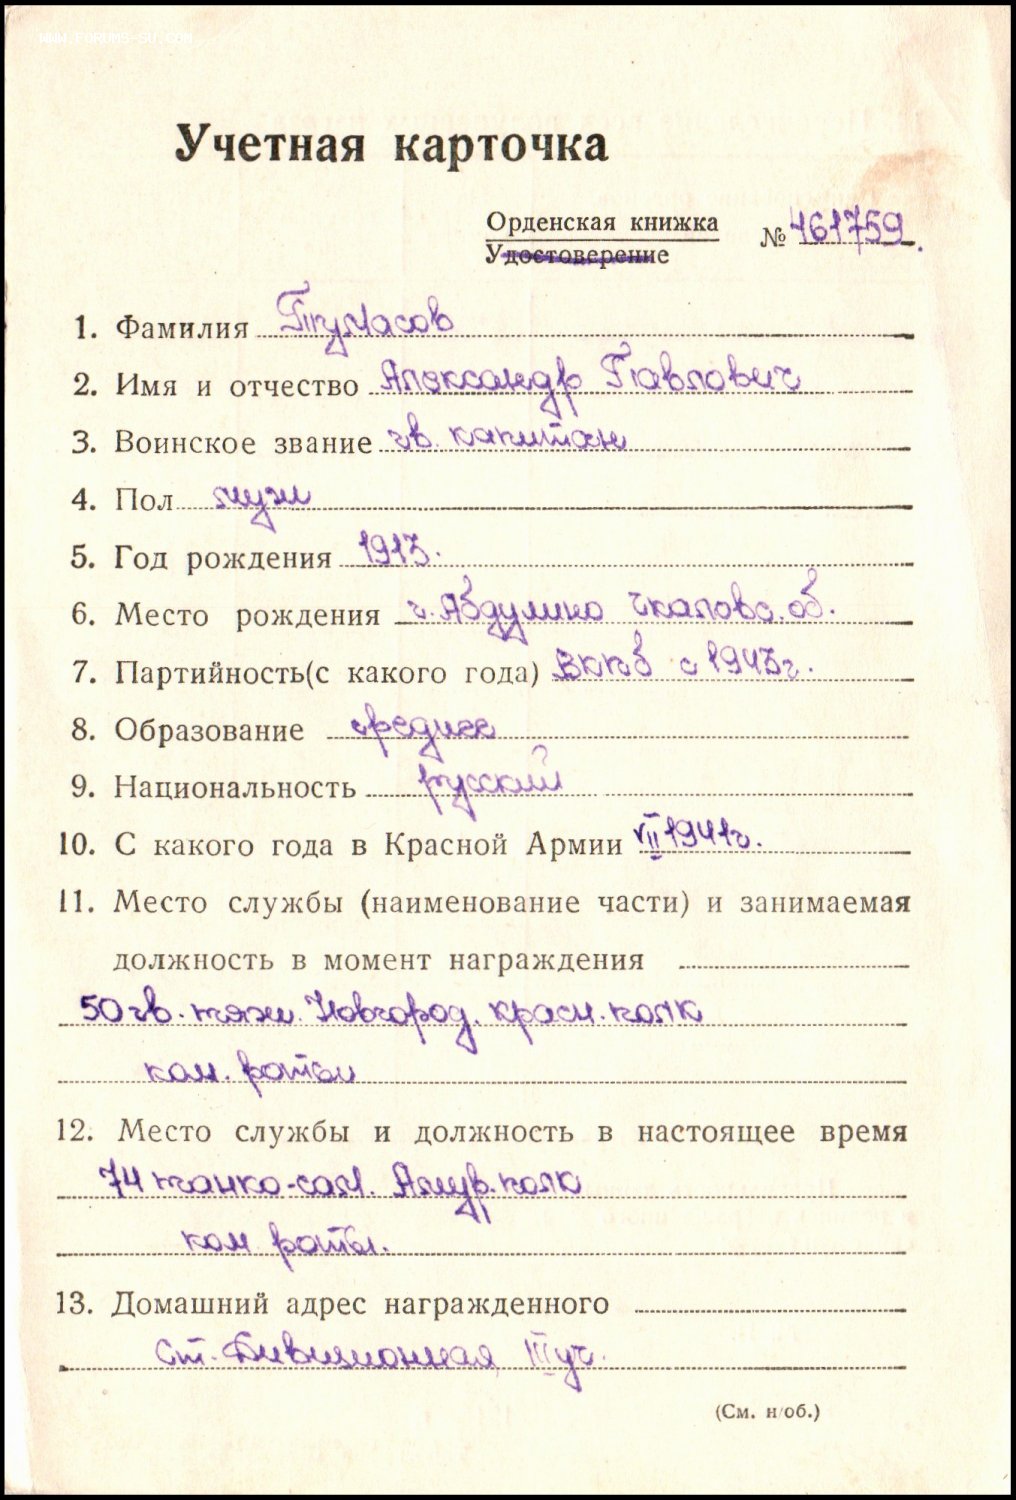 WWW.FORUMS-SU.COM
Учетная карточка
Орденская книжка № 461759.
Удостоверение
1. Фамилия Тумасов
2. Имя и отчество Александр Павлович
3. Воинское звание гв. капитан
4. Пол муж
5. Год рождения 1913.
6. Место рождения г. Абдулино Чкаловс. об.
7. Партийность(с какого года) ВКПб с 1943г.
8. Образование среднее
9. Национальность русский
10. С какого года в Красной Армии VII 1941г.
11. Место службы (наименование части) и занимаемая
должность в момент награждения
50 гв. тяж. Новгород. красн. полк
ком. роты
12. Место службы и должность в настоящее время
74 танко-сам. Амур. полк
ком. роты.
13. Домашний адрес награжденного
Ст. Дивизионная III уч.
(См. н/об.)